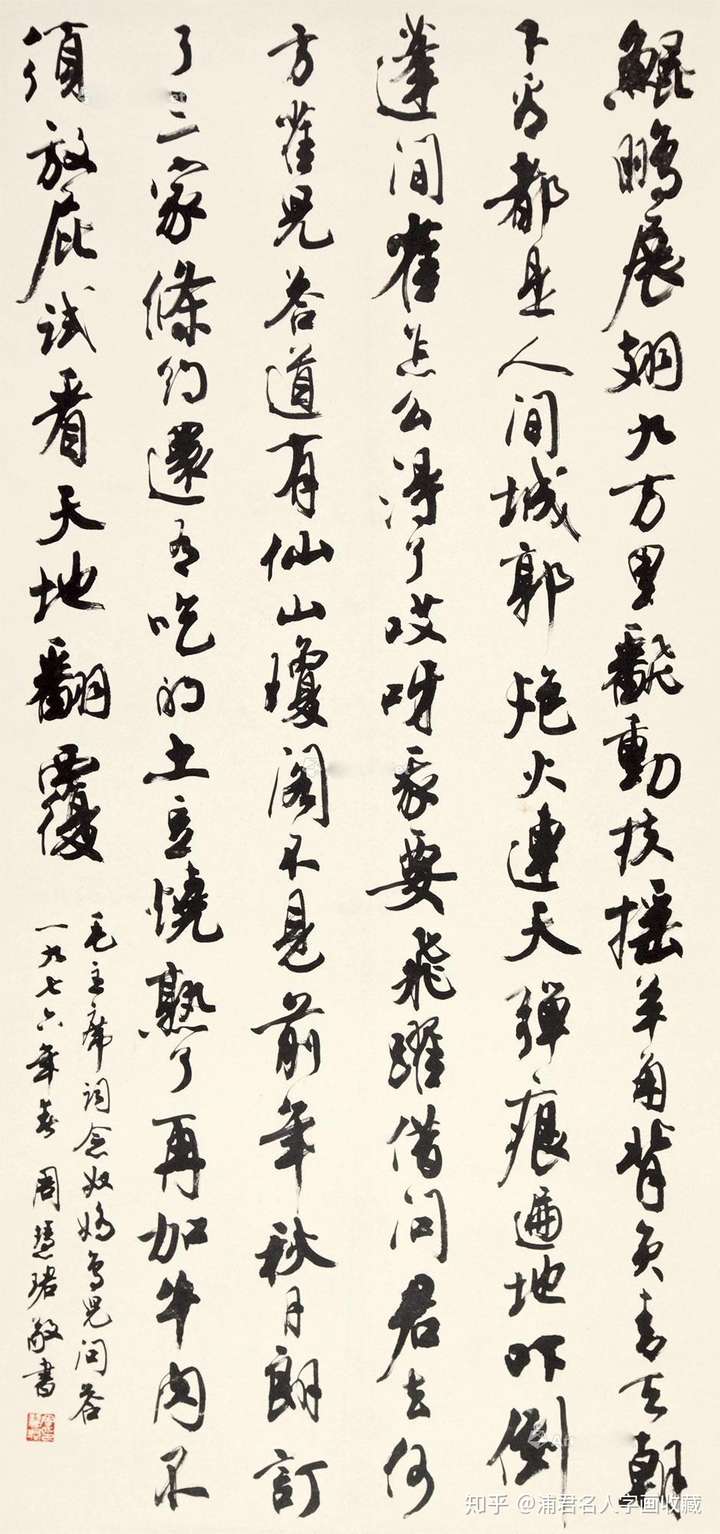 鲲鹏展翅九万里翻動扶摇羊角背负青天朝
下看都是人间城郭炮火連天彈痕遍地吓倒
蓬间雀怎么得了哎呀我要飛躍借问君去何
方雀兒答道有仙山瓊阁不見前年秋月朗訂
了三家條约還有吃的土豆燒熟了再加牛肉不
须放屁试看天地翻覆
毛主席词念奴娇鸟兒问答
一九七六年春 周慧珺敬書
知乎 @浦君名人字画收藏